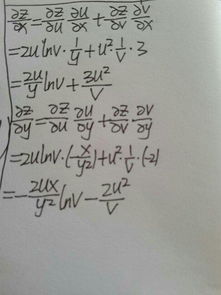 ∂z/∂x = ∂z/∂u ∂u/∂x + ∂z/∂v ∂v/∂x
=2ulnv·1/y+u²·1/v·3
=2u/y lnv + 3u²/v
∂z/∂y = ∂z/∂u ∂u/∂y + ∂z/∂v · ∂v/∂y
=2ulnv·(-x/y²)+u²·1/v·(-2)
=-2ux/y² lnv - 2u²/v